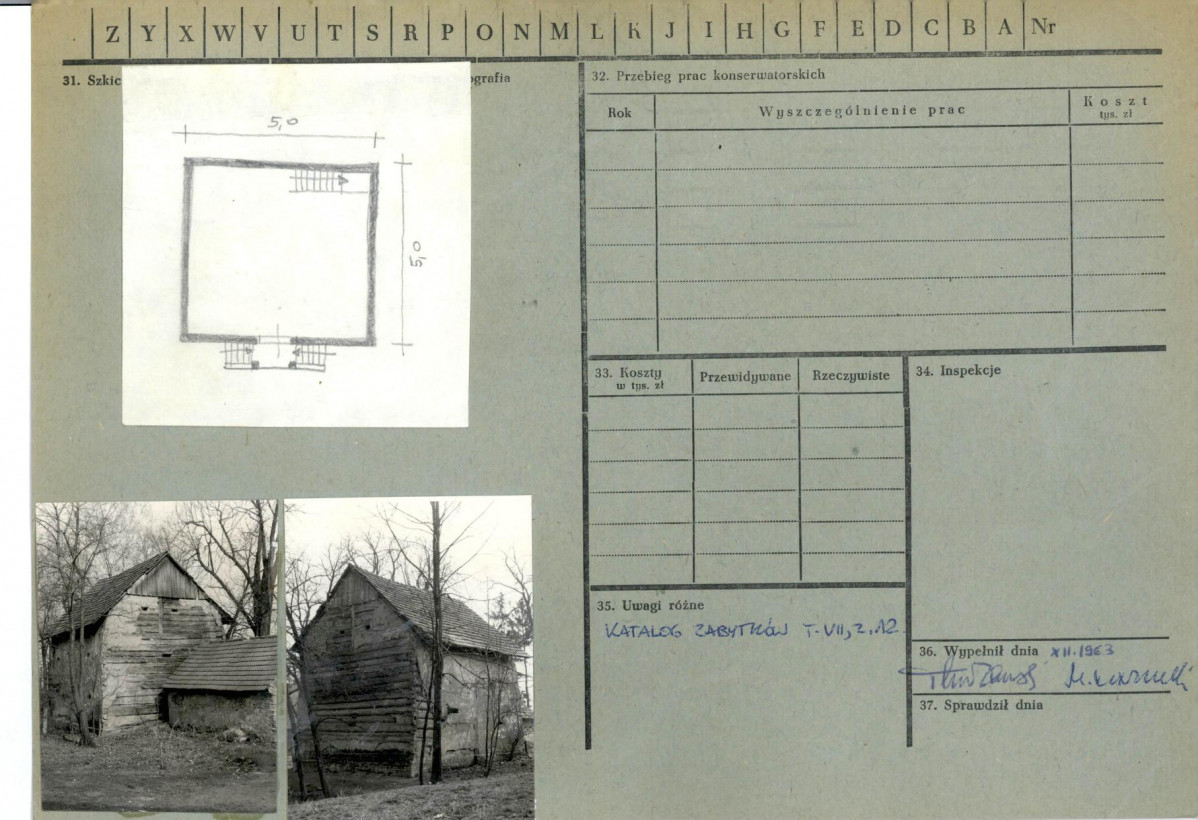 Z Y X W V U T S R P O N M L K J I H G F E D C B A Nr
31. Szkic
ografia
5,0
5,0
32. Przebieg prac konserwatorskich
Rok
Wyszczególnienie prac
Koszt
tys. zł
33. Koszty
w tys. zł
Przewidywane
Rzeczywiste
34. Inspekcje
35. Uwagi różne
KATALOG ZABYTKÓW T. VII, Z. 12
36. Wypełnił dnia XII.1963
37. Sprawdził dnia